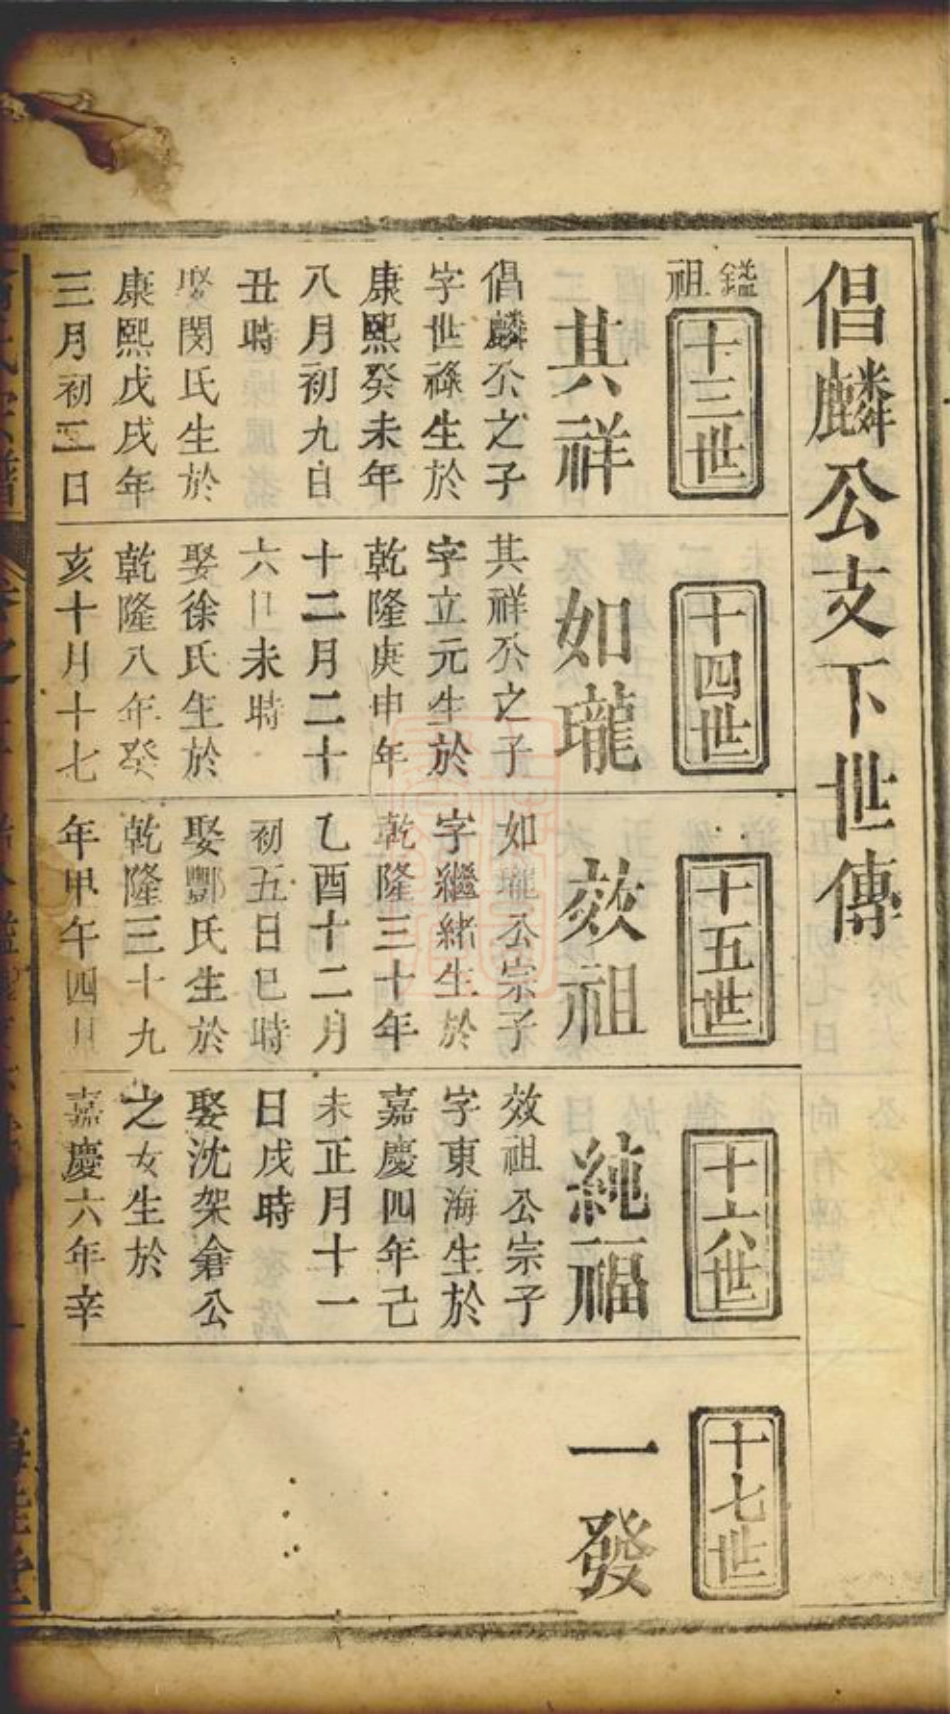 倡麟公支下世傳
鎰祖
十三世
其祥
倡麟公之子
字世祿生於
康熙癸未年
八月初九日
丑時
娶閔氏生於
康熙戊戌年
三月初二日
十四世
如瓏
其祥公之子
字立元生於
乾隆庚申年
十二月二十
六日未時
娶徐氏生於
乾隆八年癸
亥十月十七
十五世
效祖
如瓏公宗子
字繼緒生於
乾隆三十年
乙酉十二月
初五日巳時
娶酆氏生於
乾隆三十九
年甲午四月
十六世
純福
效祖公宗子
字東海生於
嘉慶四年己
未正月十一
日戌時
娶沈架倉公
之女生於
嘉慶六年辛
十七世
一發